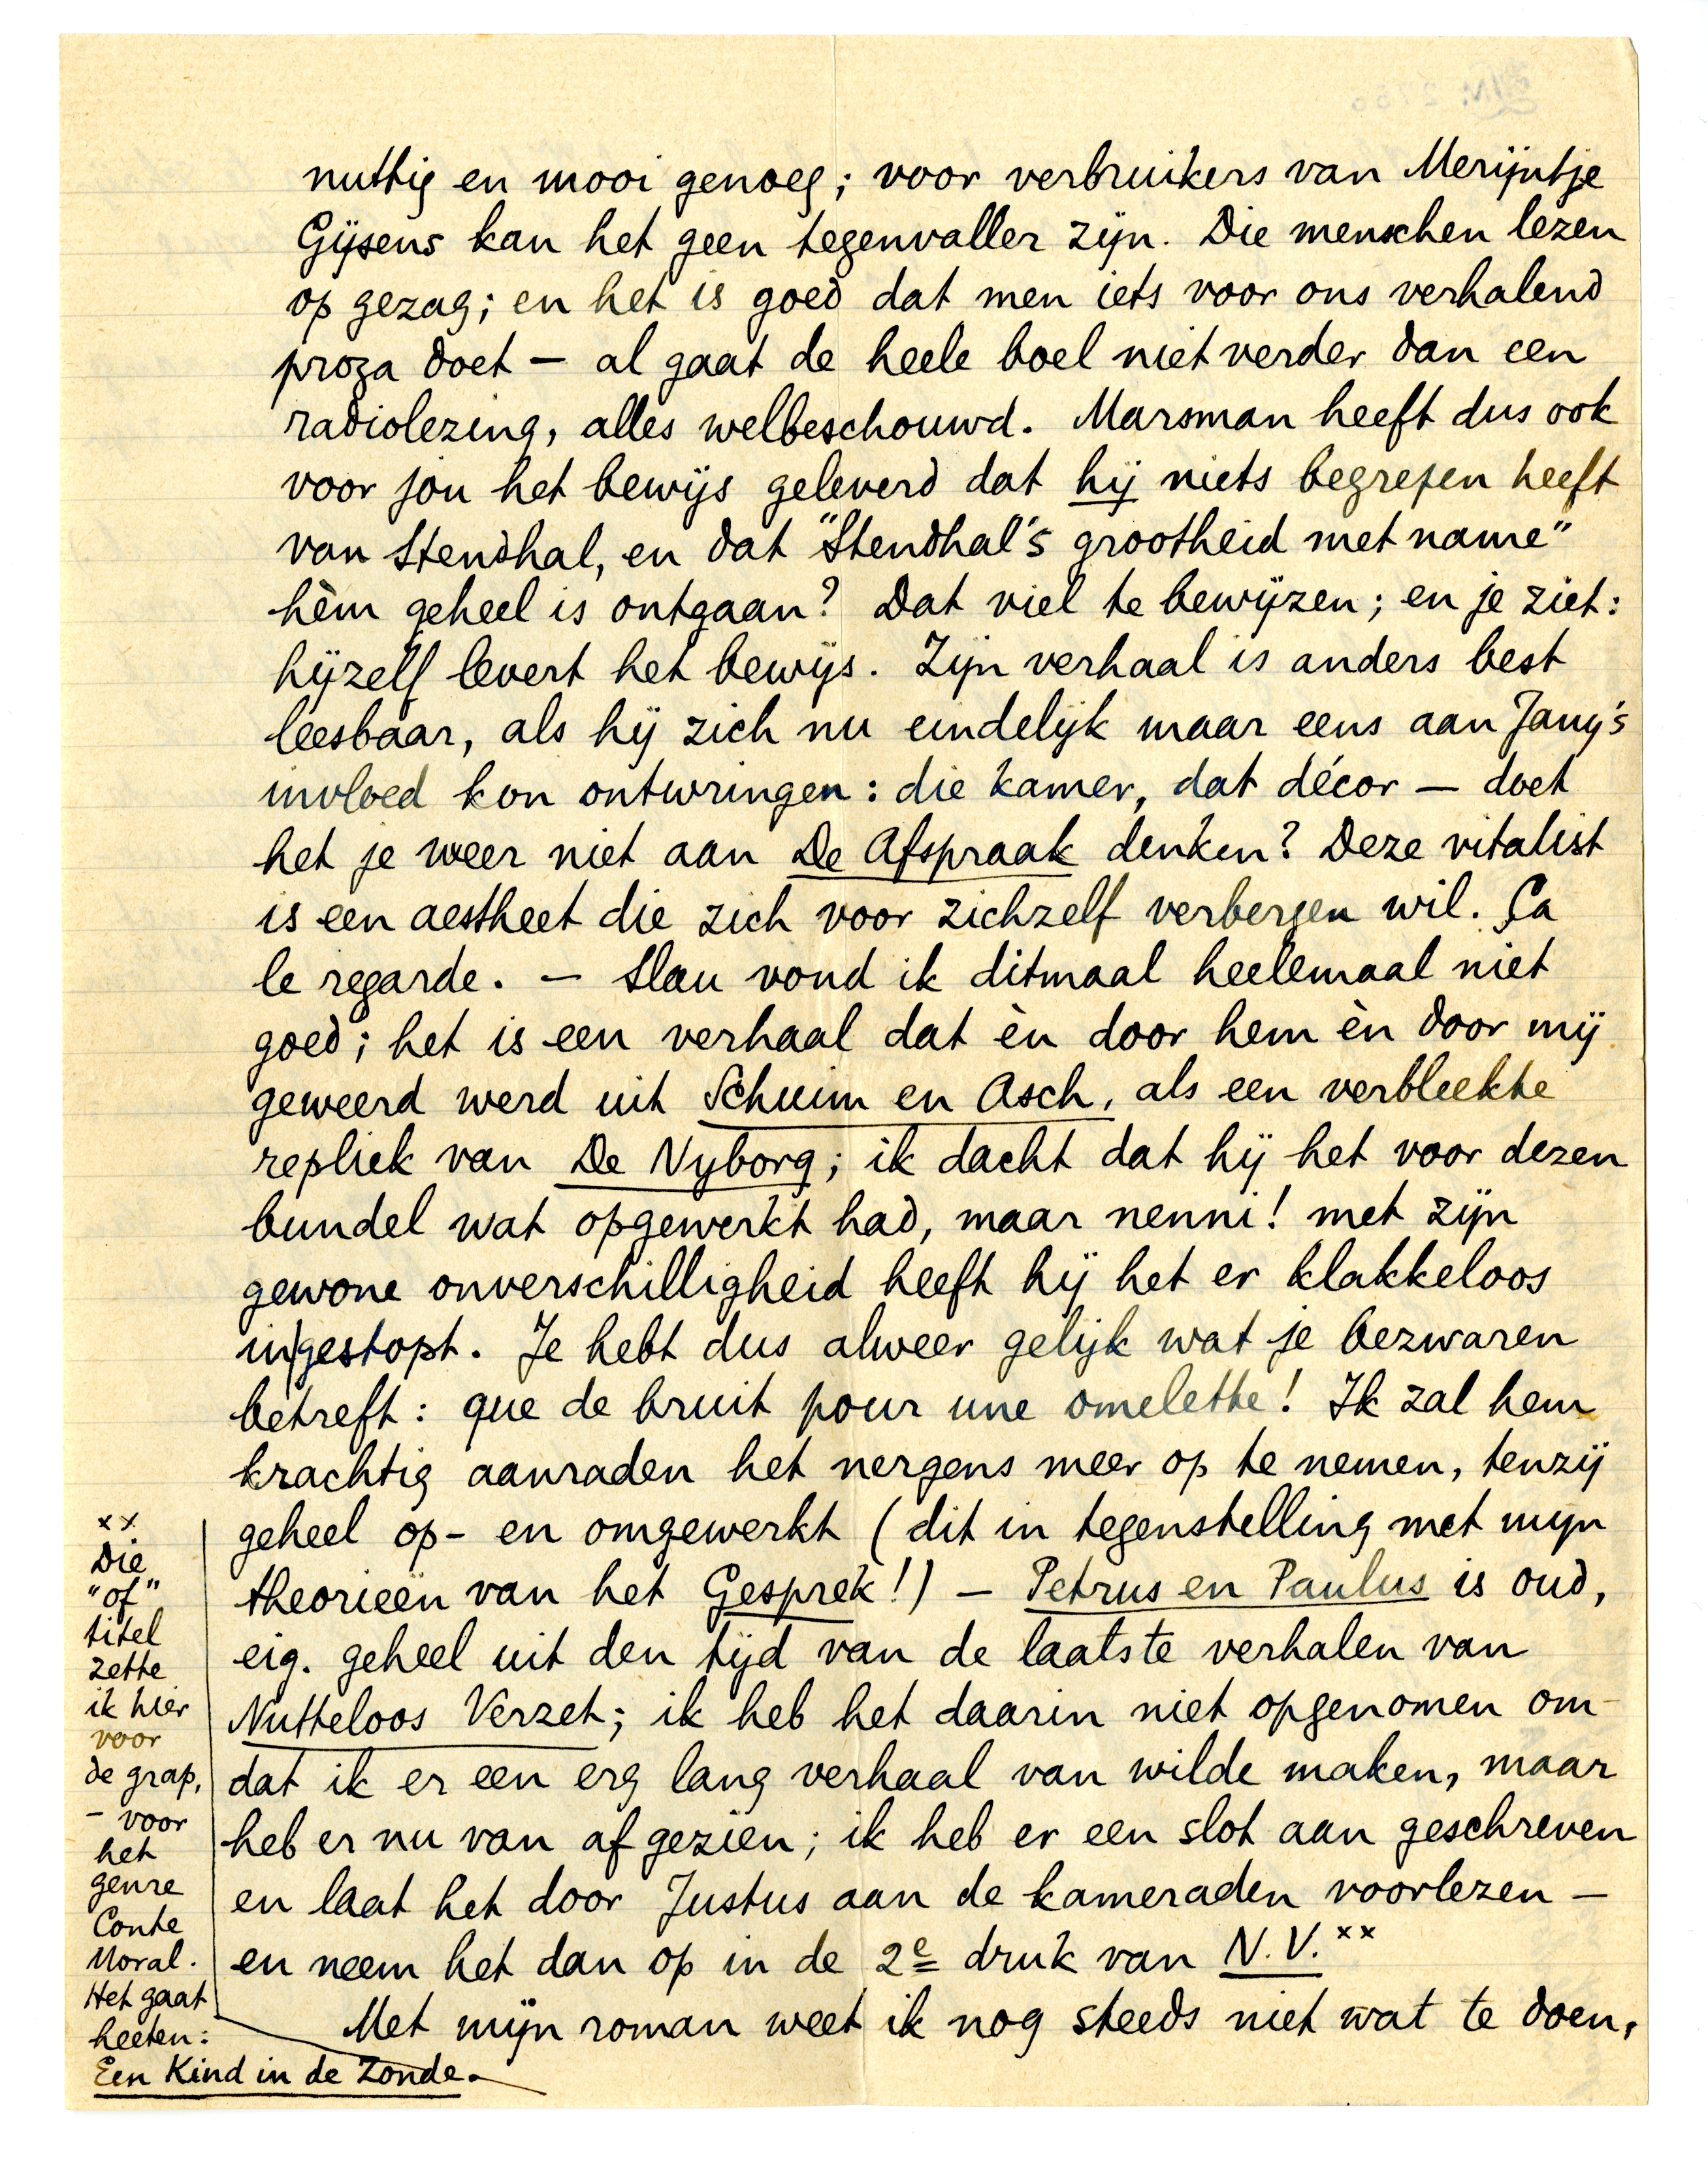 nuttig en mooi genoeg; voor verbruikers van Merijntje
Gijsens kan het geen tegenvaller zijn. Die menschen lezen
op gezag; en het is goed dat men iets voor ons verhalend
proza doet — al gaat de heele boel niet verder dan een
radiolezing, alles welbeschouwd. Marsman heeft dus ook
voor jou het bewijs geleverd dat hij niets begrepen heeft
van Stendhal, en dat "Stendhal's grootheid met name"
hèm geheel is ontgaan? Dat viel te bewijzen; en je ziet:
hijzelf levert het bewijs. Zijn verhaal is anders best
leesbaar, als hij zich nu eindelijk maar eens aan Jany's
invloed kon ontwringen: die kamer, dat décor — doet
het je weer niet aan De Afspraak denken? Deze vitalist
is een aestheet die zich voor zichzelf verbergen wil. Ça
le regarde. — Slau vond ik ditmaal heelemaal niet
goed; het is een verhaal dat èn door hem èn door mij
geweerd werd uit Schuim en Asch, als een verbleekte
repliek van De Nyborg; ik dacht dat hij het voor dezen
bundel wat opgewerkt had, maar nenni! met zijn
gewone onverschilligheid heeft hij het er klakkeloos
in|gestopt. Je hebt dus alweer gelijk wat je bezwaren
betreft: que de bruit pour une omelette! Ik zal hem
krachtig aanraden het nergens meer op te nemen, tenzij
geheel op- en omgewerkt (dit in tegenstelling met mijn
theorieën van het Gesprek!) — Petrus en Paulus is oud,
eig. geheel uit den tijd van de laatste verhalen van
Nutteloos Verzet; ik heb het daarin niet opgenomen om-
dat ik er een erg lang verhaal van wilde maken, maar
heb er nu van af gezien; ik heb er een slot aan geschreven
en laat het door Justus aan de kameraden voorlezen —
en neem het dan op in de 2e druk van N.V.xx
Met mijn roman weet ik nog steeds niet wat te doen,
xx
Die
"of"
titel
zette
ik hier
voor
de grap,
— voor
het
genre
Conte
Moral.
Het gaat
heeten:
Een Kind in de Zonde.